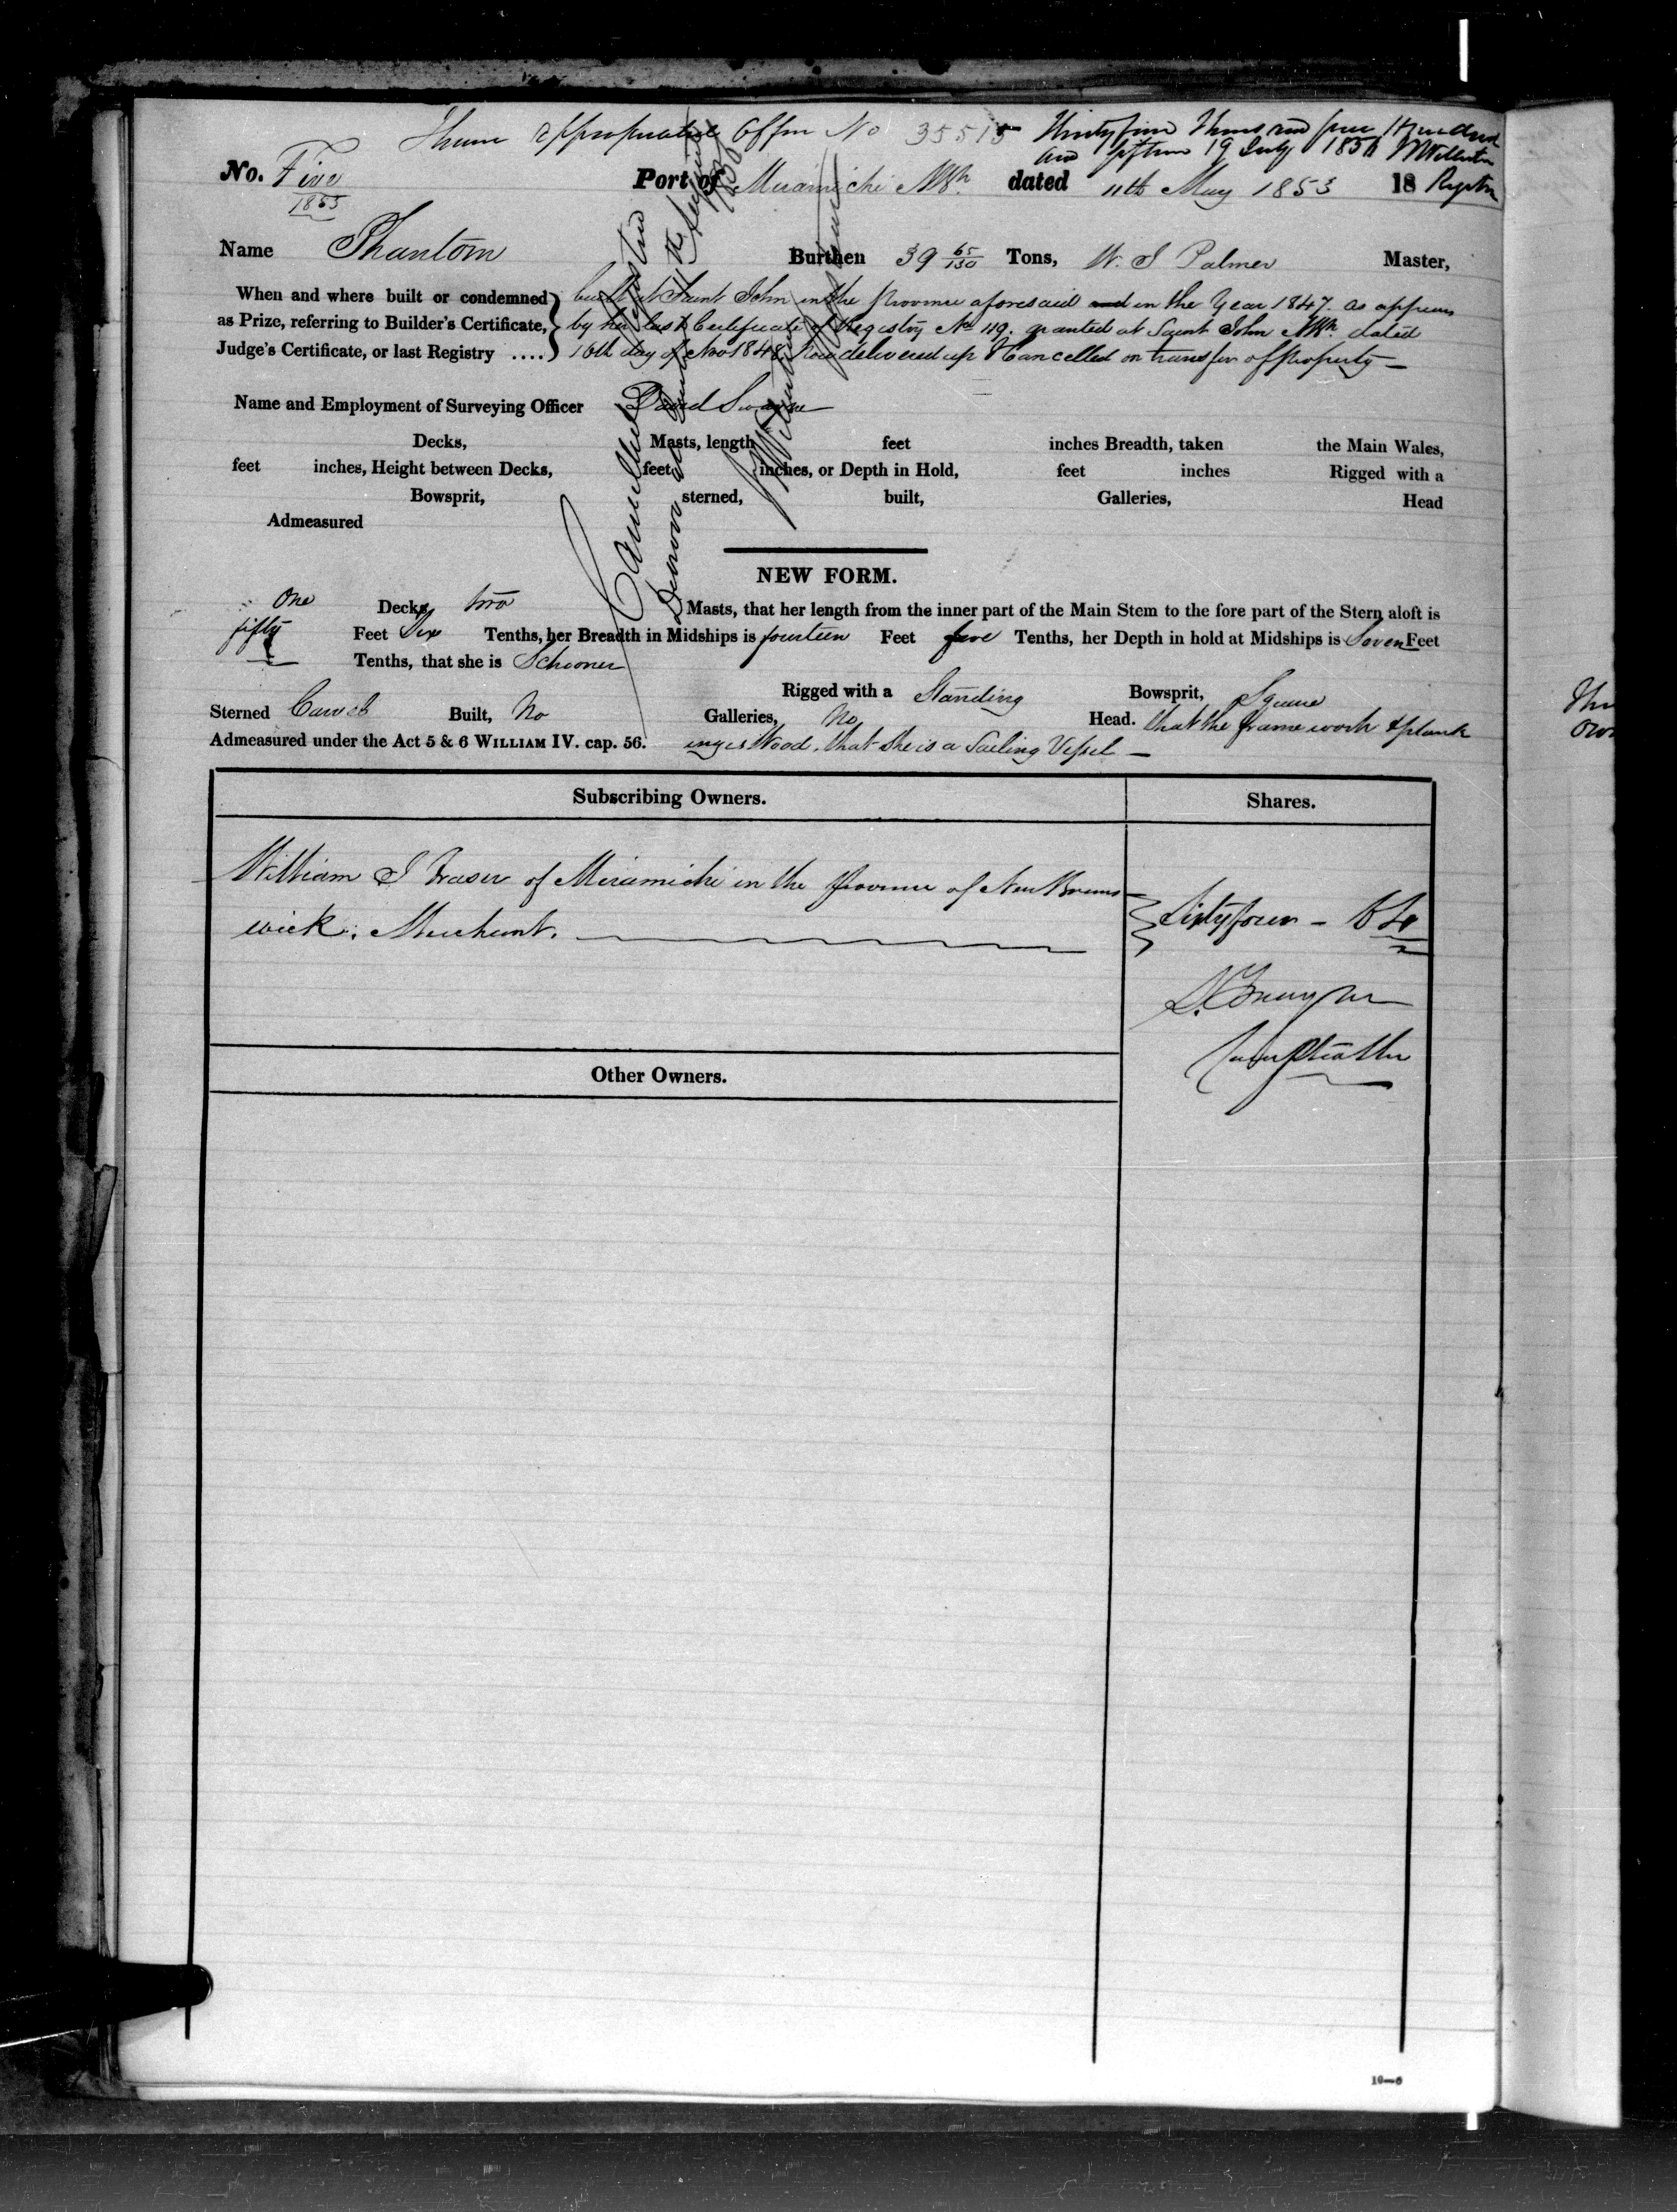 I have appropriated Offl No 35515 Thirty five Thousand five Hundred
and fifteen 19 July 1856 Willoston
Registrar
No. Five Port of Miramichi NBk dated 11th May 1853 18
1853
Name Phantom Burthen 39 65/130 Tons, W. J Palmer Master,
When and where built or condemned built at Saint John in the Province aforesaid and in the Year 1847. as appears
as Prize, referring to Builder's Certificate, by her last Certificate of Registry No 119. granted at Saint John NBk. dated
Judge's Certificate, or last Registry .... 16th day of Nov 1848 Now delivered up & Cancelled on transfer of Property —
Name and Employment of Surveying Officer David
Decks, Masts, length feet inches Breadth, taken the Main Wales,
feet inches, Height between Decks, feet inches, or Depth in Hold, feet inches Rigged with a
Bowsprit, sterned, built, Galleries, Head
Admeasured
Cancelled Registered
NEW FORM.
One Decks, two Masts, that her length from the inner part of the Main Stem to the fore part of the Stern aloft is
fifty Feet Six Tenths, her Breadth in Midships is fourteen Feet five Tenths, her Depth in hold at Midships is Seven Feet
Tenths, that she is Schooner
Rigged with a Standing Bowsprit, Square
Sterned Carvel Built, No Galleries, No Head. that the frame work & plank
Admeasured under the Act 5 & 6 WILLIAM IV. cap. 56. ing is Wood, that She is a Sailing Vessel —
Subscribing Owners. Shares.
William J Fraser of Miramichi in the Province of New Bruns
wick, Merchant. Sixty four - 64
Other Owners.
10—6